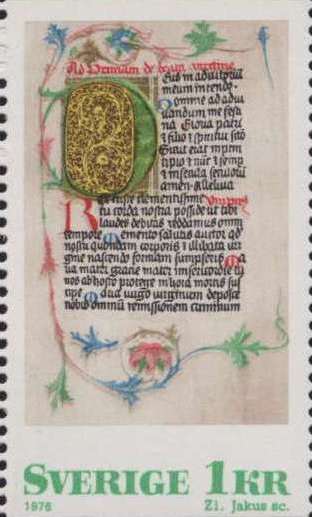 Ad Primam de beata virgine
Deus in adiutoriū
meum intende
Domine ad adiu
vandum me festi
na Gloria patri
et filio et spiritui scto
Sicut erat in prin
cipio et nūc et semp
in secula seculorū
amen Alleluia
tu corda nostra posside ut tibi
laudes debitas reddamus omni
tempore Memento salutis auctor qd
nostri quondam corporis ex illibata vir
gine nascendo formam sumpseris Ma
ria mater gratie mater misericordie tu
nos ab hoste protege in hora mortis sus
cipe
nobis omniū remissionem criminum
SVERIGE 1KR
1976 Zl. Jakus sc.